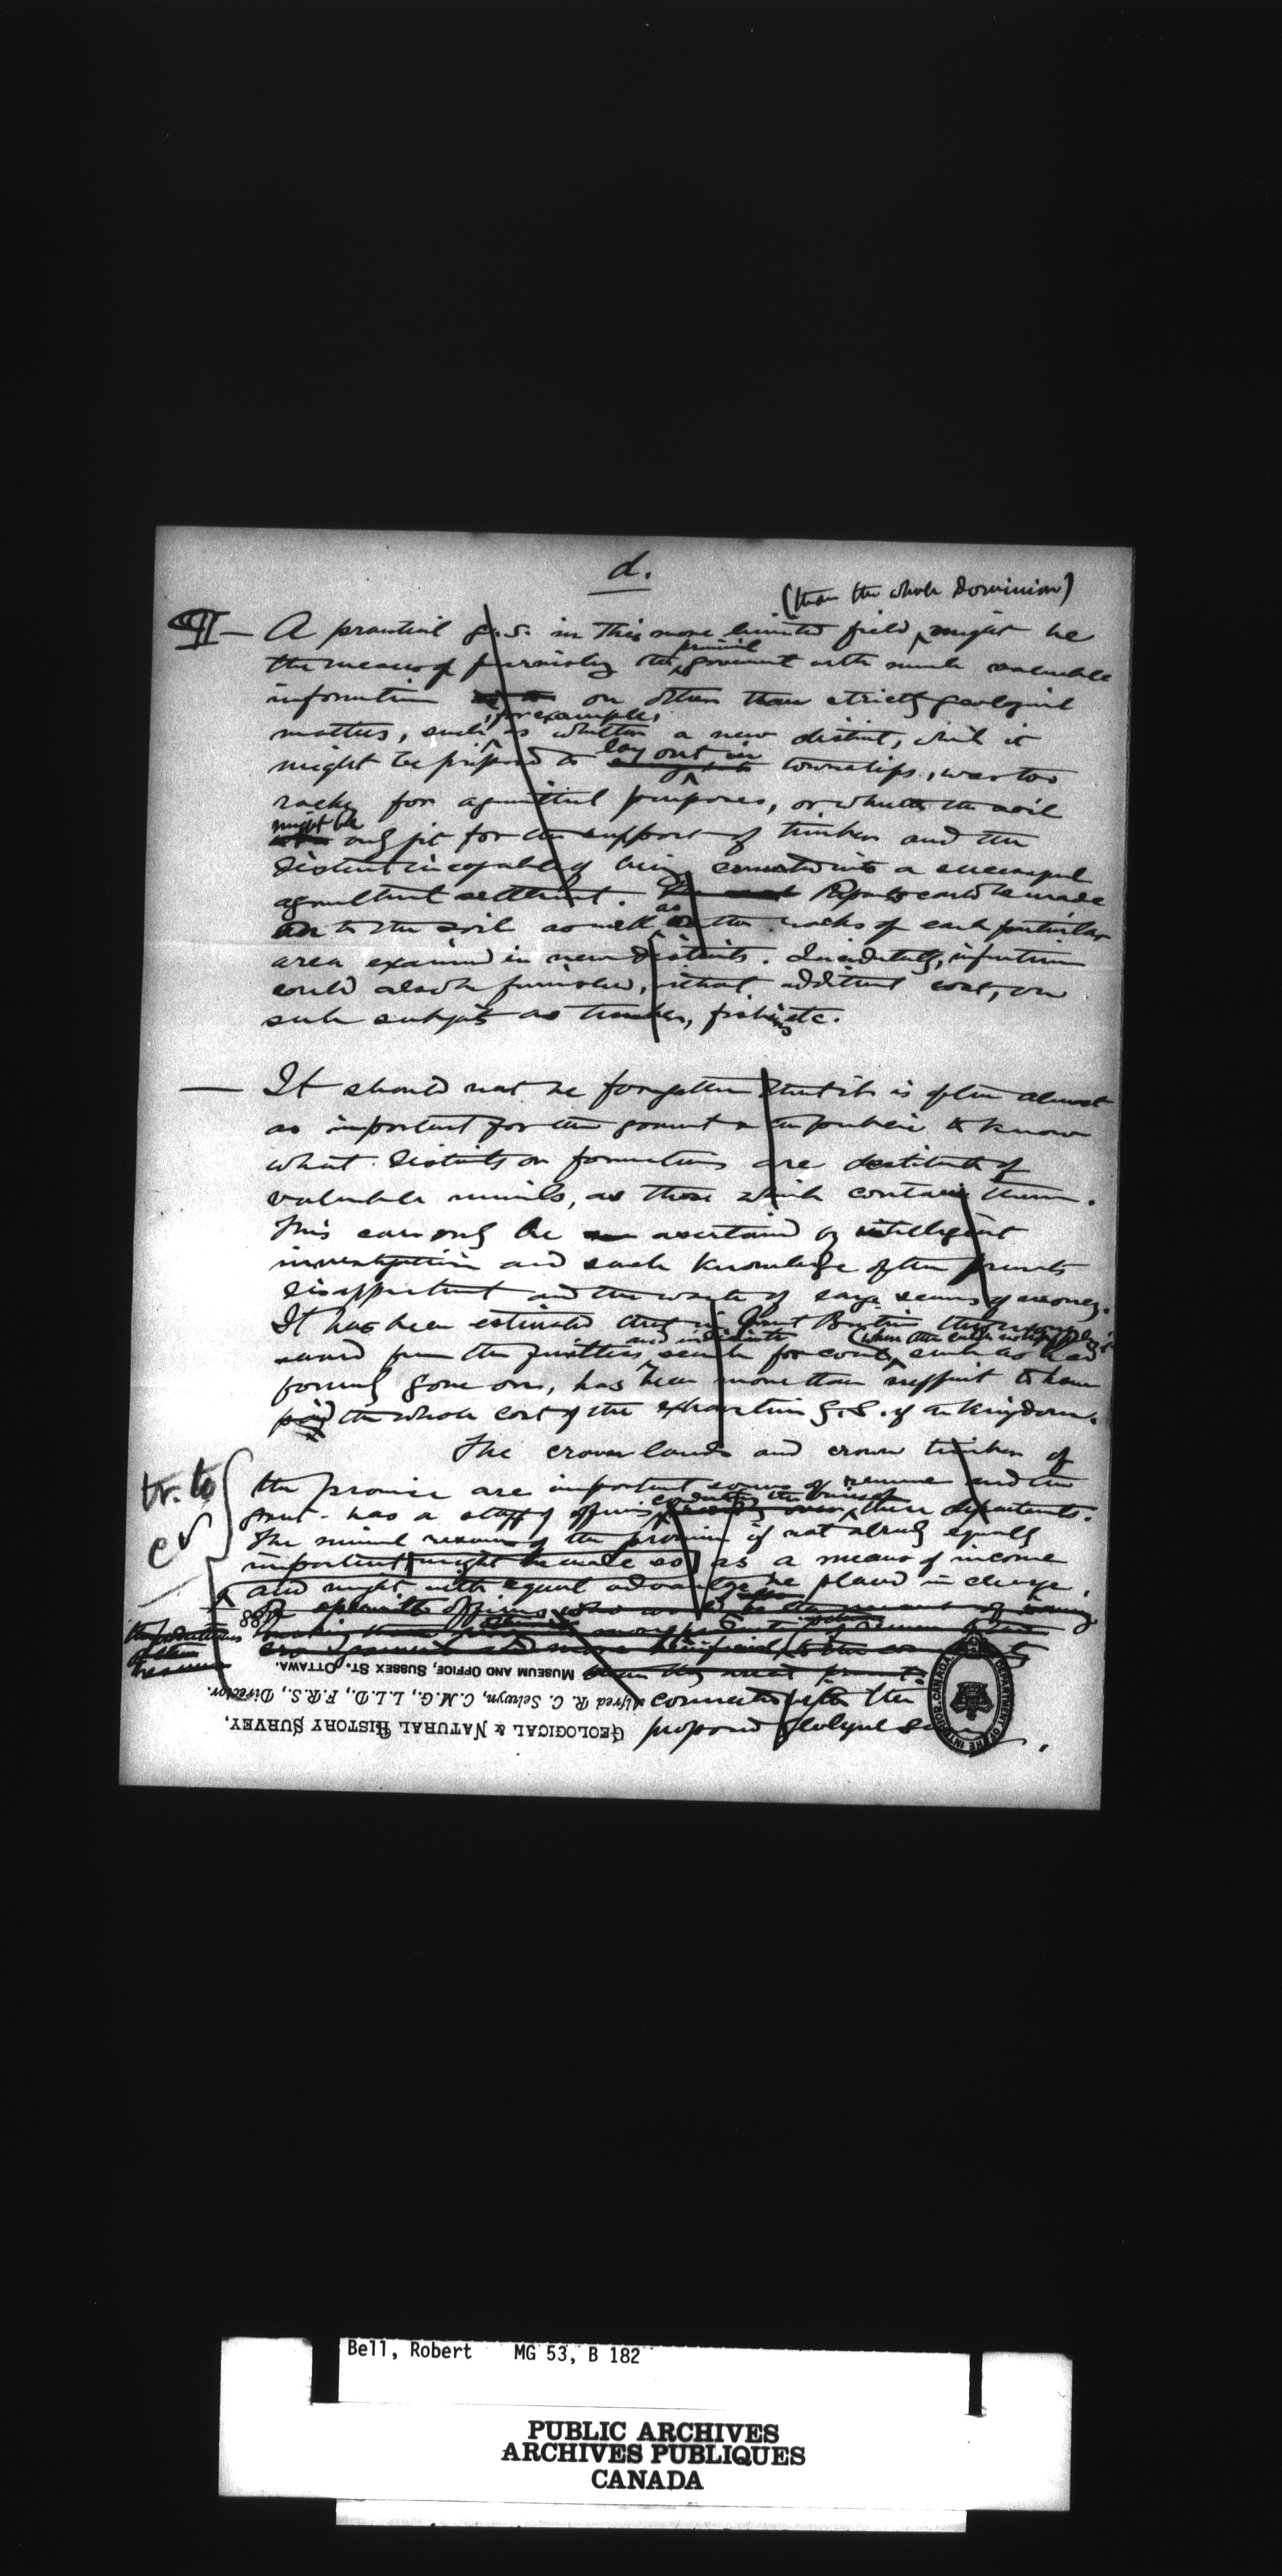 d.
(than the whole Dominion)
¶ — A practical G.S. in this more limited field, might be
the means of furnishing the government with much valuable
information on other than strictly geological
, for example,
matters, such as whether a new district, which it
lay out in
might be proposed to townships, was too
rocky for agricultural purposes, or whether the soil
might be
only fit for the support of timber and the
district incapable of being converted into a successful
agricultural settlement. Reports could be made
as
to the soil as well the rocks of each particular
area examined in new districts. Incidentally, information
could also be furnished, without additional cost, on
such subjects as timber, etc.
— It should not be forgotten that it is often almost
as important for the government & the public to know
what districts or formations are destitute of
valuable minerals, as those which contain them.
This can only be ascertained by intelligent
investigation and such knowledge often prevents
disappointment and the waste of large sums of money.
It has been estimated that in Great Britain the
saved from the fruitless search for coal, such as had
formerly gone on, has been more than sufficient to have
paid the whole cost of the exhaustive G.S. of the kingdom.
The crown lands and crown timber of
tr. to
the province are important sources of revenue and the
conducting the business of
govt. has a staff of officers these departments.
The mineral resources of the province if not already equally
important, [might be made so] as a means of income
and might with equal advantage be placed in charge
MUSEUM AND OFFICE, SUSSEX ST. OTTAWA.
Alfred R. C. Selwyn, C.M.G., L.L.D., F.R.S., Director.
connected with the
GEOLOGICAL & NATURAL HISTORY SURVEY,
proposed
DEPARTMENT OF THE INTERIOR. CANADA
Bell, Robert MG 53, B 182
PUBLIC ARCHIVES
ARCHIVES PUBLIQUES
CANADA